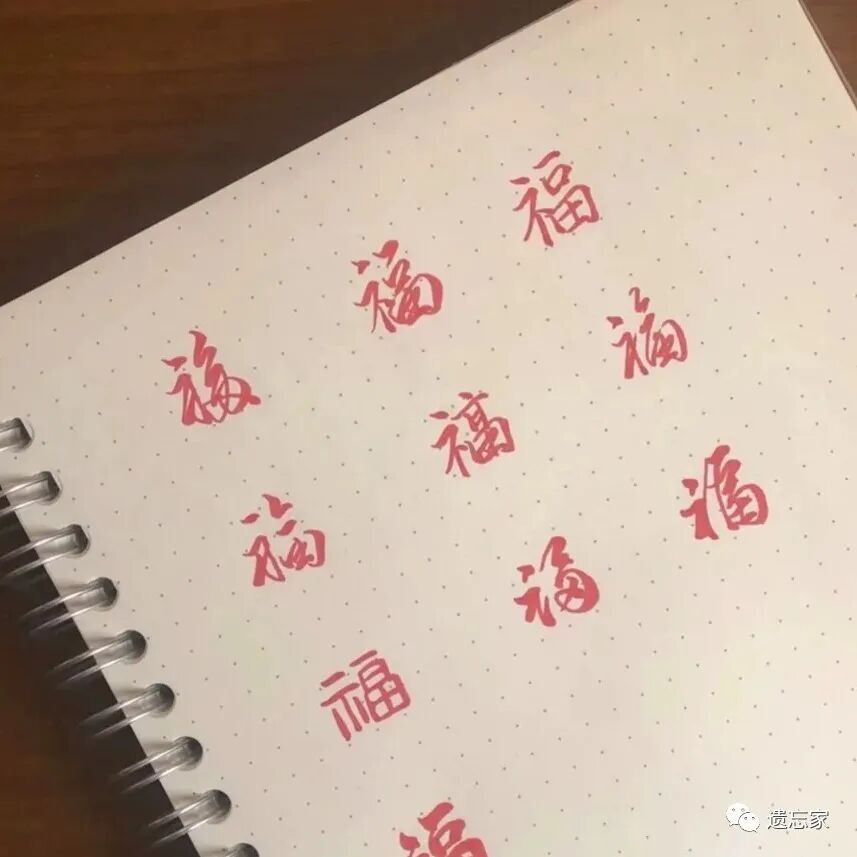 福 福 福
福 福 福
福 福 福
福
遗忘家